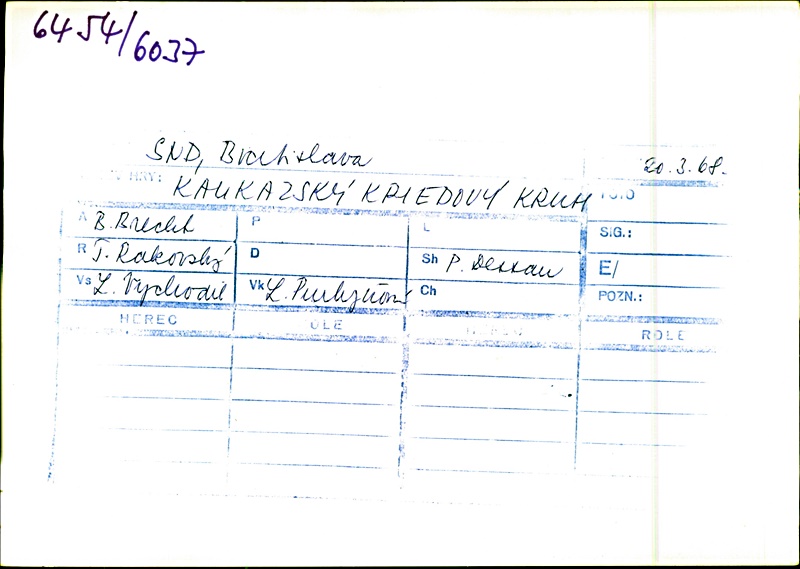 6454/6037
SND, Bratislava 20.3.68.
HRY: KAUKAZSKÝ KRIEDOVÝ KRUH
A B. Brecht P L SIG.:
R T. Rakovský D Sh P. Dessau E/
Vs L. Vychodil Vk L. Purkyňová Ch POZN.:
HEREC ROLE